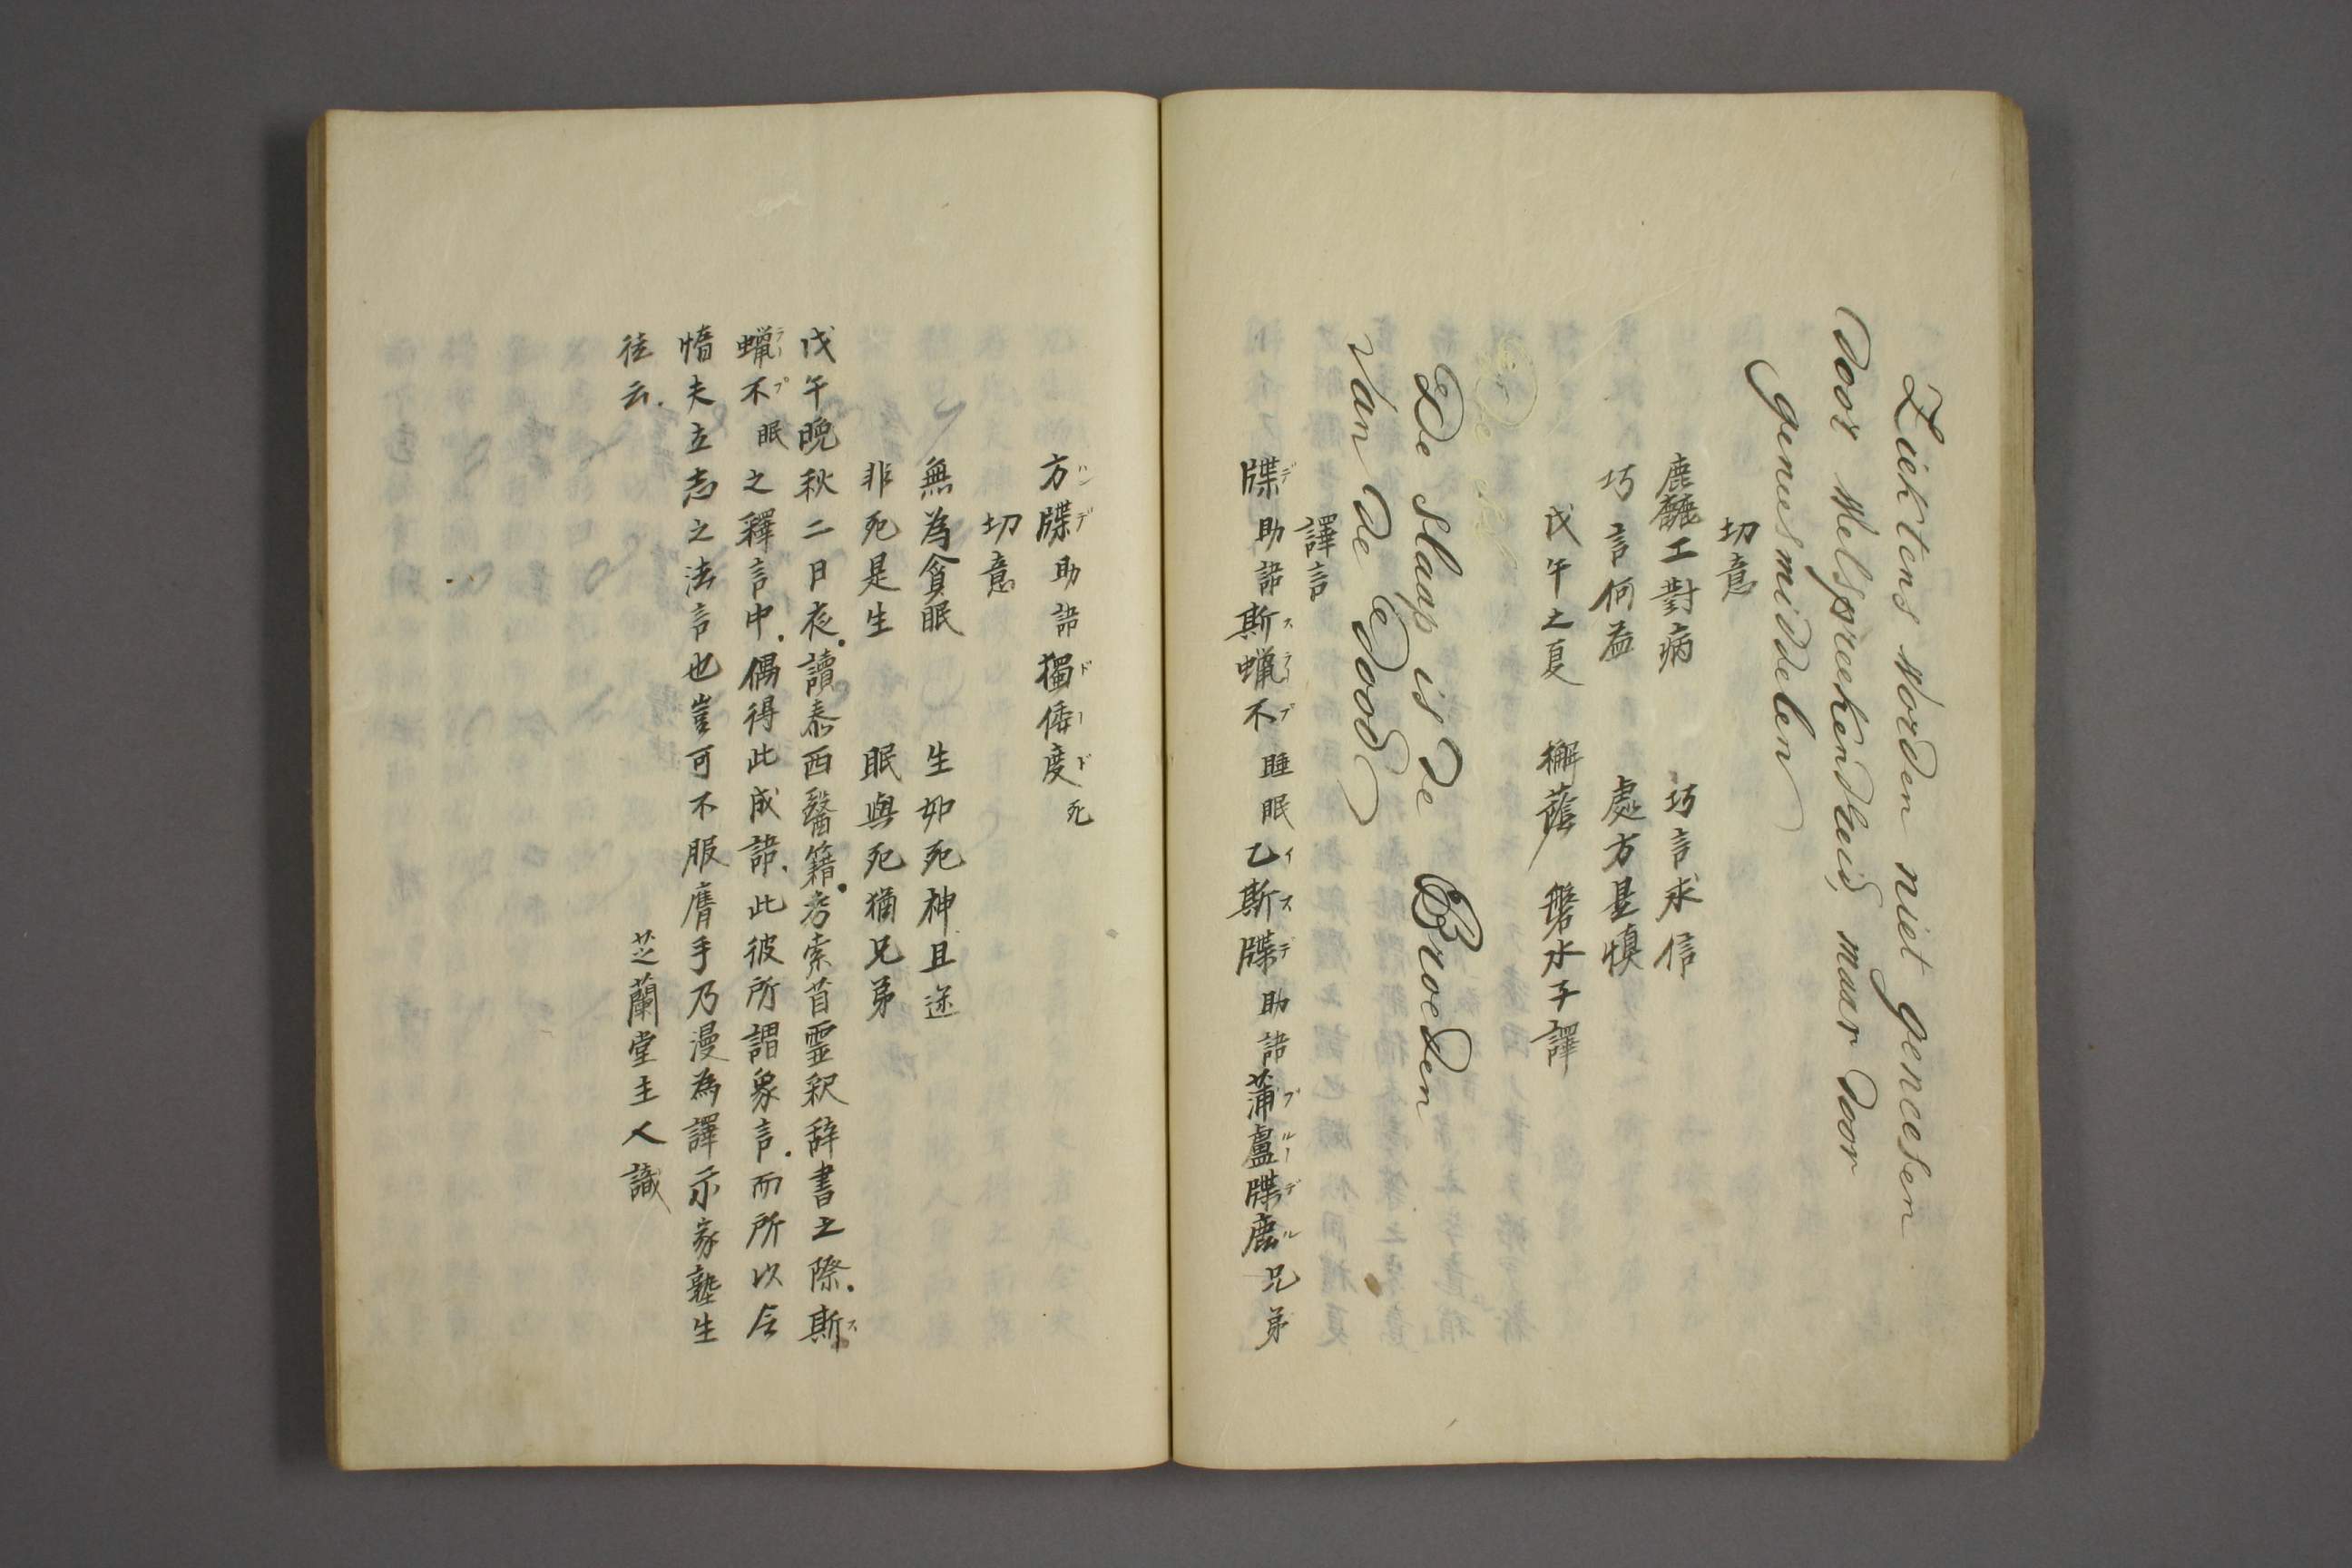 Ziektens worden niet geneesen
door Welspreekendheid, maar door
geneesmiddelen
切意
麤工對病　巧言求信
巧言何益　處方是慎
戊午之夏　槲蔭　磐水子譯
De slaap is de Broeder
Van de Dood
譯言
牒デ助語斯ス蠟ラー不プ睡眠乙イ斯ス牒デ助語蒲ブ盧ルー牒デ鹿ル兄弟
方ハン牒デ助語獨ド倭ー度ド死
切意
無為貪眠　生如死神且逝
非死是生　眠與死猶兄弟
戊午晩秋二日夜讀泰西醫籍考索苜霊釈辞書之際斯ス
蠟ラー不プ眠之釋言中偶得此成語此彼所謂象言而所以令
惰夫立志之法言也豈可不服膺乎乃漫為譯示家塾生
徒云
芝蘭堂主人識